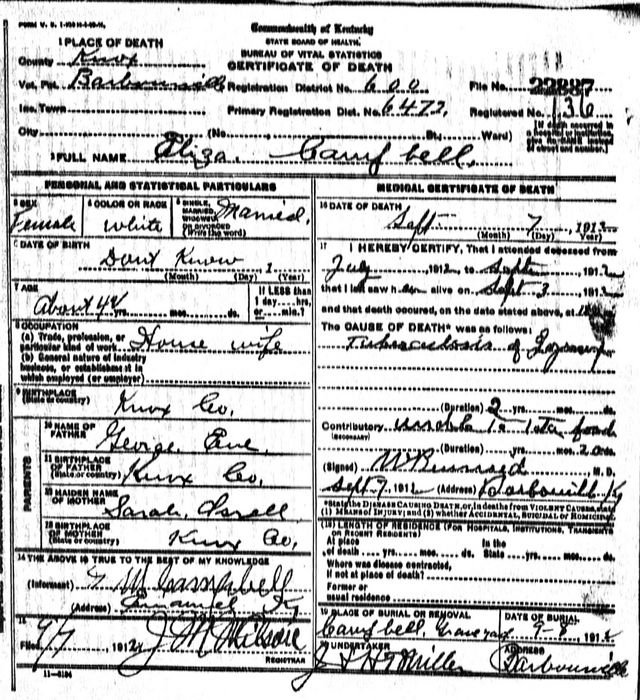 Commonwealth of Kentucky
STATE BOARD OF HEALTH
BUREAU OF VITAL STATISTICS
CERTIFICATE OF DEATH
1 PLACE OF DEATH
County Knox
Vot. Pct. Barbourville Registration District No. 600 File No. 22887
Inc. Town Primary Registration Dist. No. 6472 Registered No. 136
City (No. St., Ward)
[If death occurred in a hospital or institution, give its NAME instead of street and number.]
2 FULL NAME Eliza Campbell
PERSONAL AND STATISTICAL PARTICULARS
3 SEX Female
4 COLOR OR RACE White
5 SINGLE, MARRIED, WIDOWED OR DIVORCED (Write the word) Married
6 DATE OF BIRTH
Dont Know 1
(Month) (Day) (Year)
7 AGE
About 44 yrs. mos. ds.
If LESS than 1 day....hrs. or....min.?
8 OCCUPATION
(a) Trade, profession, or particular kind of work House wife
(b) General nature of industry business, or establishment in which employed (or employer)
9 BIRTHPLACE
(State or country) Knox Co.
PARENTS
10 NAME OF FATHER George
11 BIRTHPLACE OF FATHER
(State or country) Knox Co.
12 MAIDEN NAME OF MOTHER Sarah
13 BIRTHPLACE OF MOTHER
(State or country) Knox Co.
14 THE ABOVE IS TRUE TO THE BEST OF MY KNOWLEDGE
(Informant) M Campbell
(Address) Ky
15
Filed 9/7, 1912 J M Wilson
REGISTRAR
MEDICAL CERTIFICATE OF DEATH
16 DATE OF DEATH
Sept 7, 1912
(Month) (Day) (Year)
17 I HEREBY CERTIFY, That I attended deceased from
July 1912, to Sept 1912
that I last saw her alive on Sept 3 1912
and that death occurred, on the date stated above, at
The CAUSE OF DEATH* was as follows:
Tuberculosis of
(Duration) 2 yrs. mos. ds.
Contributory unable to take food
(SECONDARY)
(Duration) yrs. mos. ds.
(Signed) M. D.
Sept 7, 1912 (Address) Barbourville Ky
*State the DISEASE CAUSING DEATH, or, in deaths from VIOLENT CAUSES, state (1) MEANS OF INJURY; and (2) whether ACCIDENTAL, SUICIDAL OR HOMICIDAL.
(18) LENGTH OF RESIDENCE (FOR HOSPITALS, INSTITUTIONS, TRANSIENTS OR RECENT RESIDENTS)
At place of death yrs. mos. ds. In the State yrs. mos. ds.
Where was disease contracted, If not at place of death?
Former or usual residence
19 PLACE OF BURIAL OR REMOVAL
Campbell Graveyard
DATE OF BURIAL
9-8 1912
20 UNDERTAKER
Miller
ADDRESS
Barbourville
11-5184